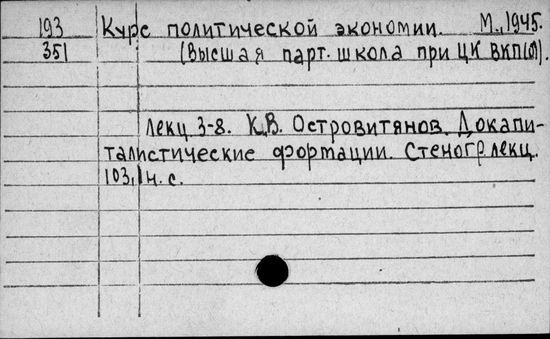 193 Курс политической экономии. М., 1945.
351 (Высшая парт. школа при ЦК ВКП(б).
Лекц. 3-8. К.В. Островитянов. Докапи-
талистические фортации. Стеногр. лекц.
103, 1 н. с.